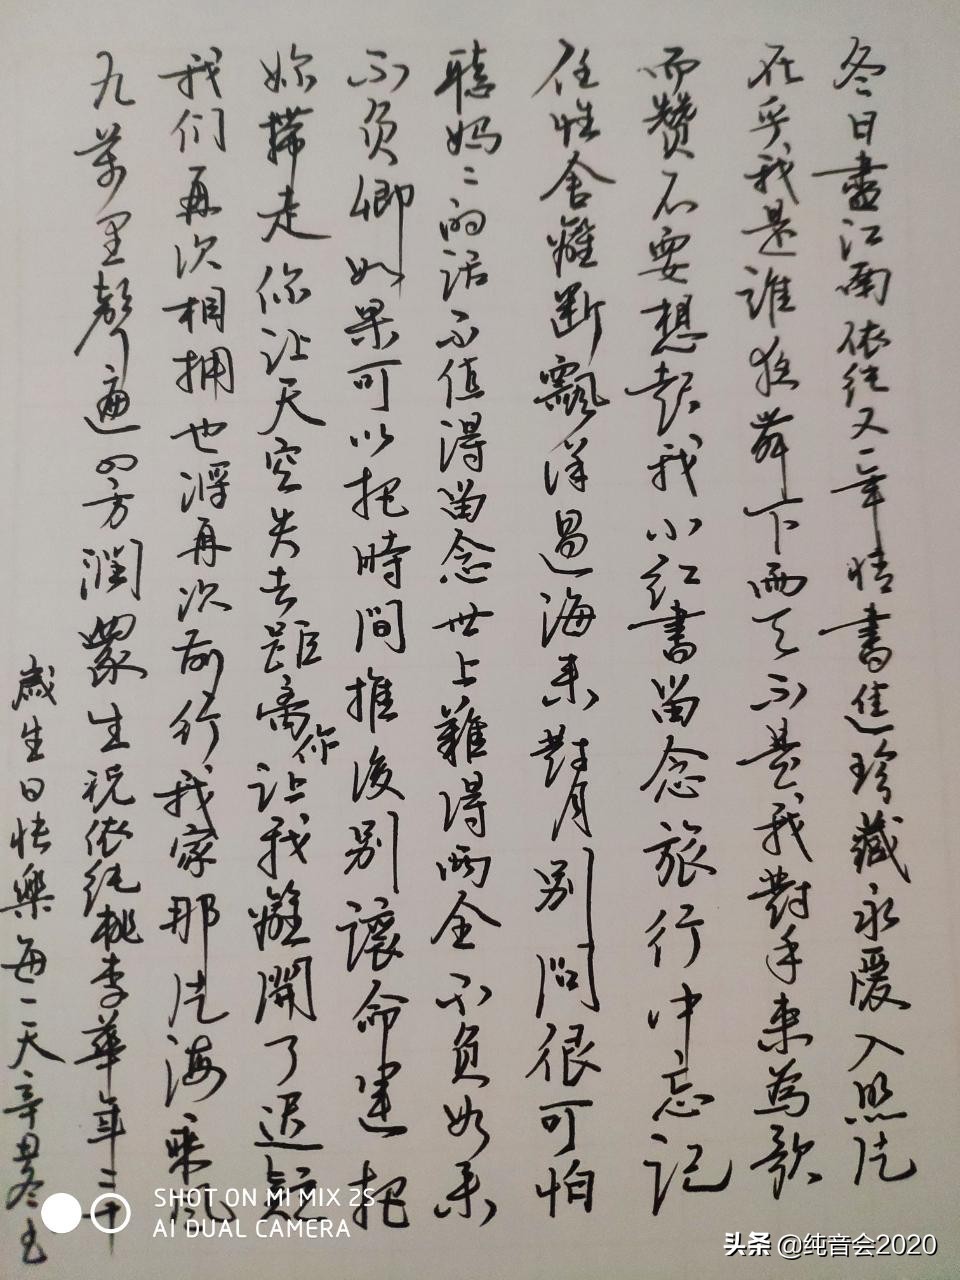 冬日画江南依纯又一年情书集珍藏永爱入照片
在乎我是谁狂舞下两天不是我对手来为歌
而赞不要想起我小红書留念旅行中忘记
任性舍離断飄洋过海来对月别问很可怕
聽妈々的话不值得留念世上難得两全不负如来
不负卿如果可以把時間推後别讓命运把
妳带走你让天空失去距离你让我離開了迟疑
我们再次相拥也得再次前行我家那片海乘风
九萬里声遍四方润众生祝依纯桃李華年二十
歲生日快樂每一天辛丑冬
SHOT ON MI MIX 2S
AI DUAL CAMERA
头条 @纯音会2020